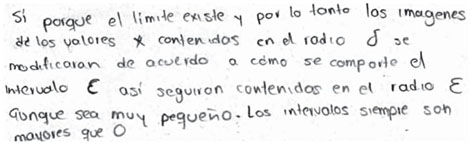 Sí porque el límite existe y por lo tanto los imagenes
de los valores x contenidos en el radio δ se
modificaran de acuerdo a cómo se comporte el
intervalo ε así seguiran contenidos en el radio ε
aunque sea muy pequeño. Los intervalos siempre son
mayores que 0